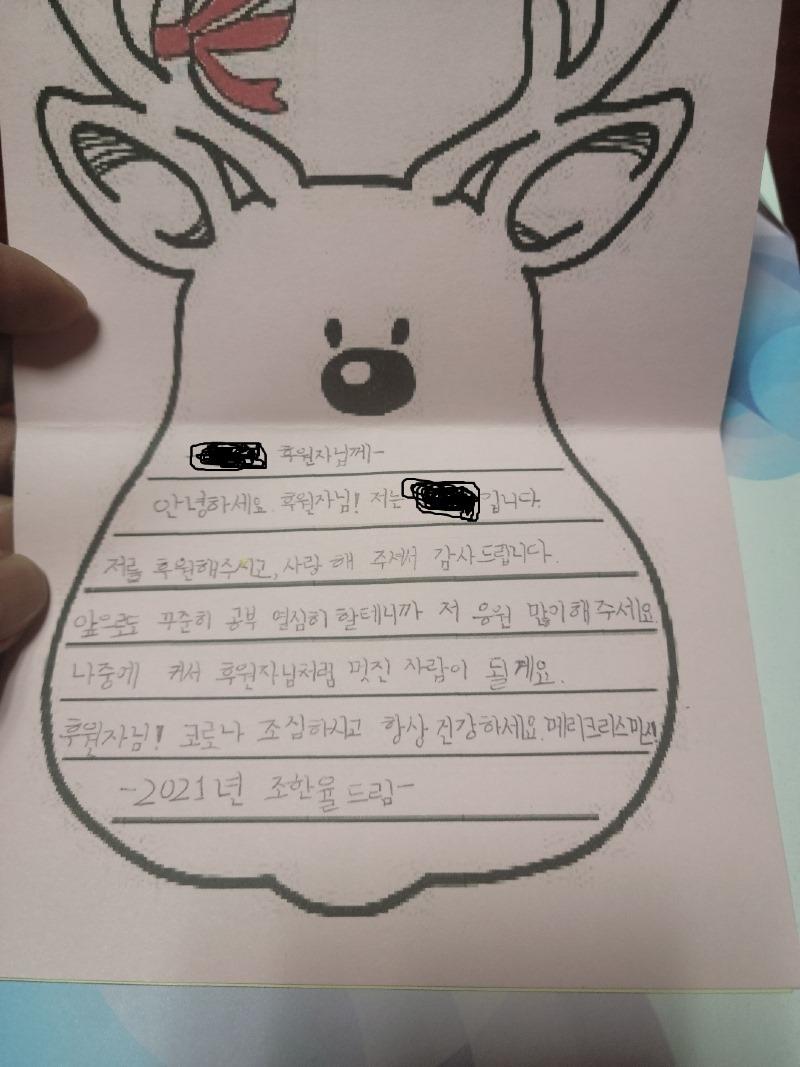 후원자님께-
안녕하세요. 후원자님! 저는 입니다.
저를 후원해주시고, 사랑 해 주셔서 감사드립니다.
앞으로도 꾸준히 공부 열심히 할테니까 저 응원 많이해주세요.
나중에 커서 후원자님처럼 멋진 사람이 될게요.
후원자님! 코로나 조심하시고 항상 건강하세요. 메리크리스마스!
-2021년 조한율 드림-